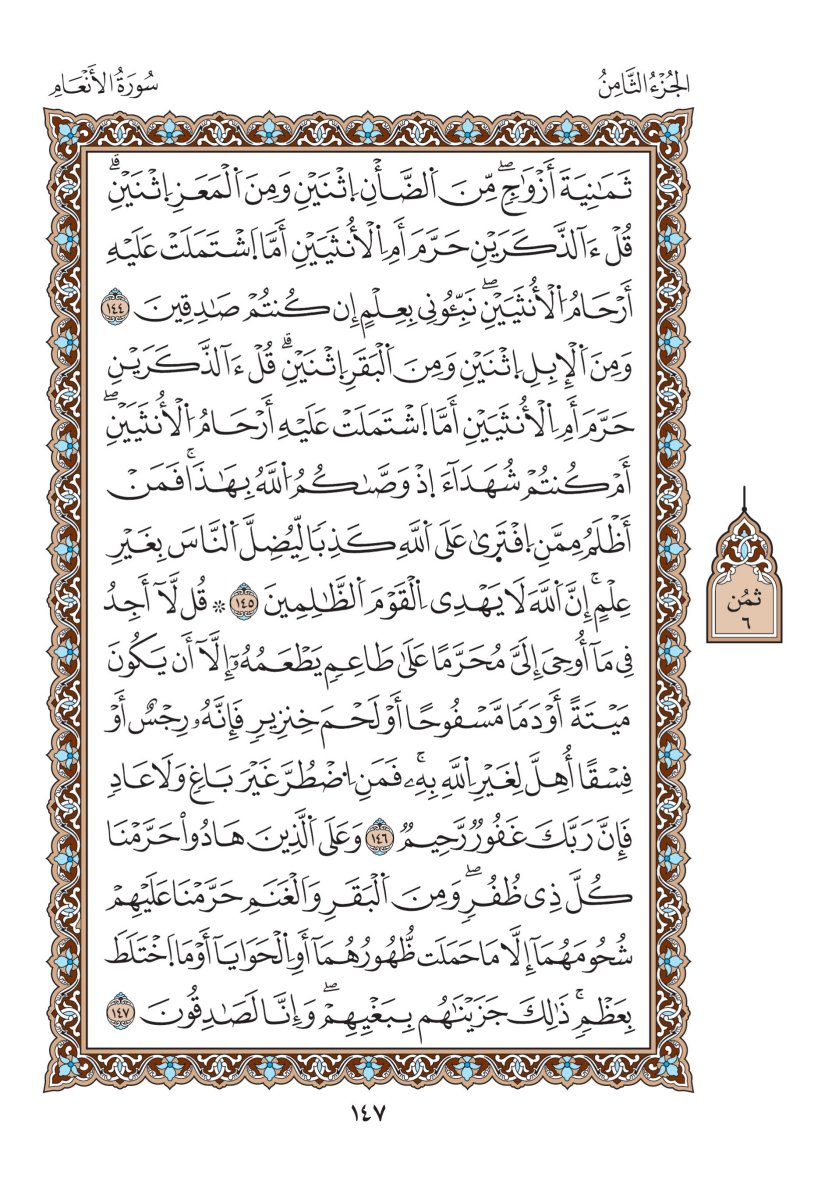 الجُزْءُ الثَّامِنُ
سُورَةُ الأَنْعَامِ
ثَمَٰنِيَةَ أَزْوَٰجٖۖ مِّنَ اَ۬لضَّأْنِ اِ۪ثْنَيْنِ وَمِنَ اَ۬لْمَعَزِ اِ۪ثْنَيْنِۗ
قُلْ ءَآلذَّكَرَيْنِ حَرَّمَ أَمِ اِ۬لْأُنثَيَيْنِ أَمَّا اَ۪شْتَمَلَتْ عَلَيْهِ
أَرْحَامُ اُ۬لْأُنثَيَيْنِۖ نَبِّـُٔونِي بِعِلْمٍ إِن كُنتُمْ صَٰدِقِينَ ١٤٤
وَمِنَ اَ۬لْإِبِلِ اِ۪ثْنَيْنِ وَمِنَ اَ۬لْبَقَرِ اِ۪ثْنَيْنِۗ قُلْ ءَآلذَّكَرَيْنِ
حَرَّمَ أَمِ اِ۬لْأُنثَيَيْنِ أَمَّا اَ۪شْتَمَلَتْ عَلَيْهِ أَرْحَامُ اُ۬لْأُنثَيَيْنِۖ
أَمْ كُنتُمْ شُهَدَآءَ اِ۪ذْ وَصَّىٰكُمُ اُ۬للَّهُ بِهَٰذَاۚ فَمَنْ
أَظْلَمُ مِمَّنِ اِ۪فْتَر۪ىٰ عَلَى اَ۬للَّهِ كَذِبٗا لِّيُضِلَّ اَ۬لنَّاسَ بِغَيْرِ
عِلْمٍۚ إِنَّ اَ۬للَّهَ لَا يَهْدِي اِ۬لْقَوْمَ اَ۬لظَّٰلِمِينَ ١٤٥ ۞ قُل لَّآ أَجِدُ
فِي مَآ أُوحِيَ إِلَيَّ مُحَرَّمًا عَلَىٰ طَاعِمٖ يَطْعَمُهُۥٓ إِلَّآ أَن يَكُونَ
مَيْتَةً أَوْ دَمٗا مَّسْفُوحًا أَوْ لَحْمَ خِنزِيرٖ فَإِنَّهُۥ رِجْسٌ أَوْ
فِسْقًا أُهِلَّ لِغَيْرِ اِ۬للَّهِ بِهِۦۚ فَمَنِ اِ۟ضْطُرَّ غَيْرَ بَاغٖ وَلَا عَادٖ
فَإِنَّ رَبَّكَ غَفُورٞ رَّحِيمٞ ١٤٦ وَعَلَى اَ۬لَّذِينَ هَادُواْ حَرَّمْنَا
كُلَّ ذِي ظُفُرٖۖ وَمِنَ اَ۬لْبَقَرِ وَالْغَنَمِ حَرَّمْنَا عَلَيْهِمْ
شُحُومَهُمَآ إِلَّا مَا حَمَلَت ظُّهُورُهُمَآ أَوِ اِ۬لْحَوَايَآ أَوْ مَا اَ۪خْتَلَطَ
بِعَظْمٖۚ ذَٰلِكَ جَزَيْنَٰهُم بِبَغْيِهِمْۖ وَإِنَّا لَصَٰدِقُونَ ١٤٧
ثمُن
٦
١٤٧